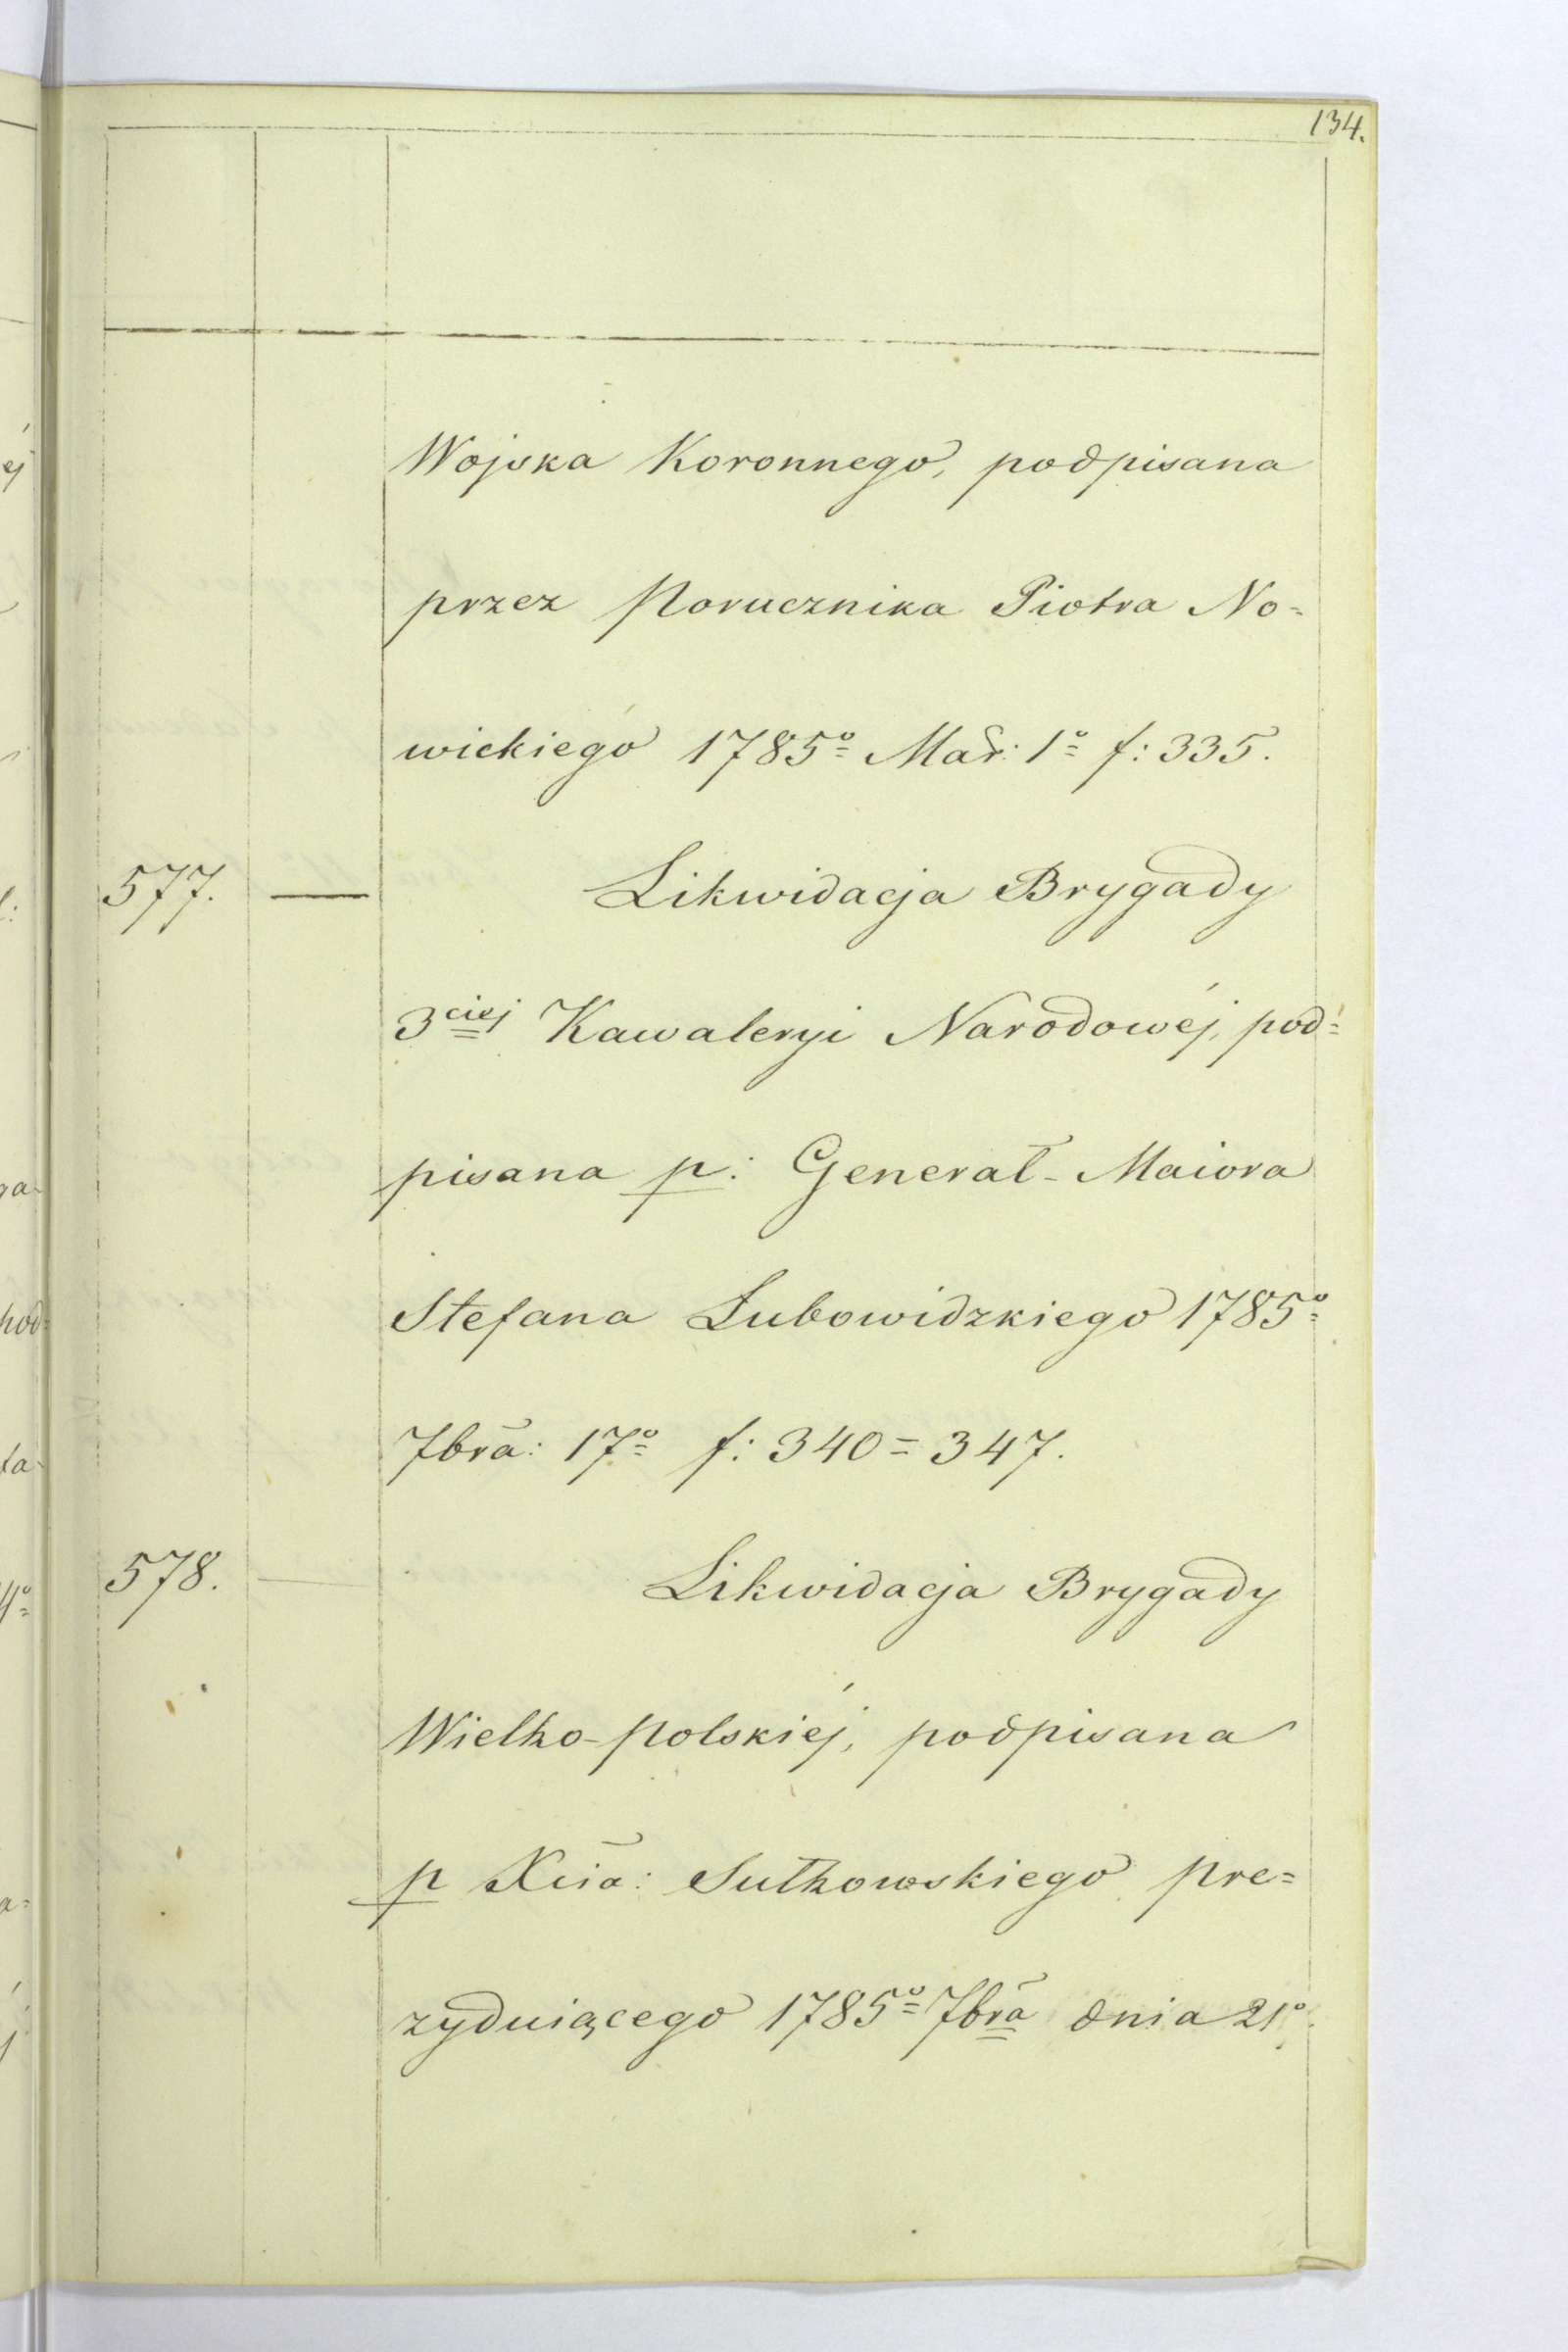 134.
Wojska Koronnego, podpisana
przez Porucznika Piotra No=
wickiego 1785º Mar: 1º f: 335.
577. — Likwidacja Brygady
3ciej Kawaleryi Narodowéj, pod=
pisana p: Generał-Maiora
Stefana Lubowidzkiego 1785º
7bra: 17º f: 340=347.
578. — Likwidacja Brygady
Wielko-Polskiéj, podpisana
p Xcia: Sułkowskiego pre=
zyduiącego 1785º 7bra dnia 21º